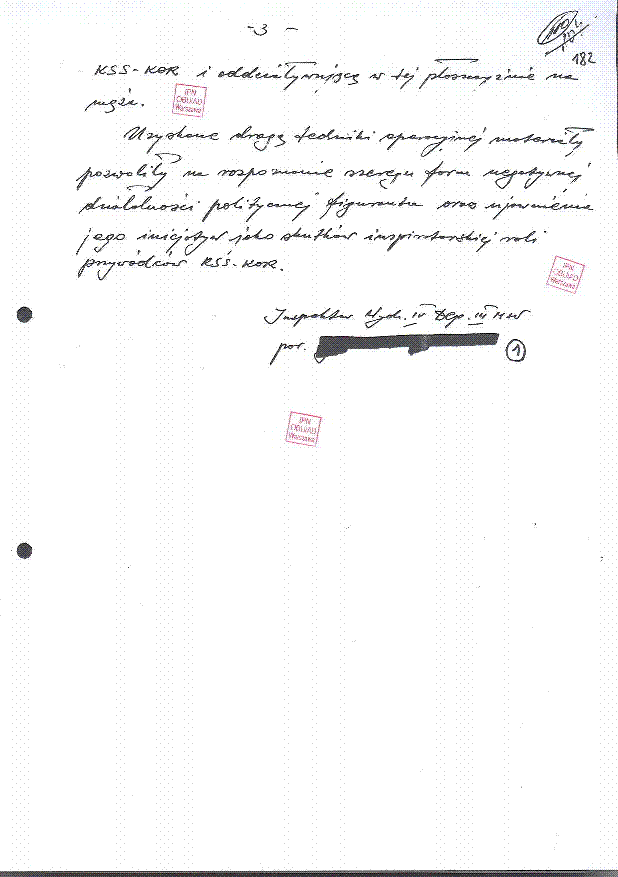 - 3 -
182
KSS-KOR i oddziaływującą w tej płaszczyźnie na
męża.
IPN
ODDZIAŁ
Warszawa
Uzyskane drogą techniki operacyjnej materiały
pozwoliły na rozpoznanie szeregu form negatywnej
działalności politycznej figuranta oraz ujawnienie
jego inicjatyw jako skutków inspiratorskiej roli
przywódców KSS-KOR.
IPN
ODDZIAŁ
Warszawa
Inspektor Wydz. IV Dep. III MSW
por.
1
IPN
ODDZIAŁ
Warszawa